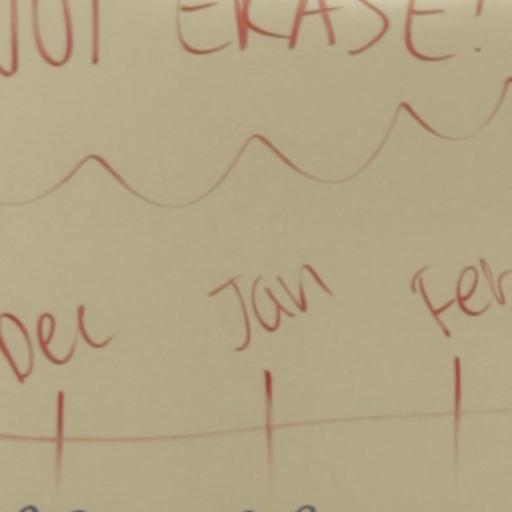 NOT ERASE!
Dec Jan Feb